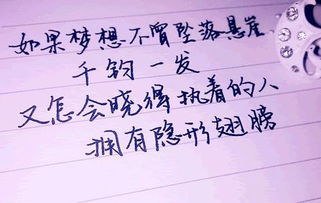 如果梦想不曾坠落悬崖
千钧一发
又怎会晓得执着的人
拥有隐形翅膀